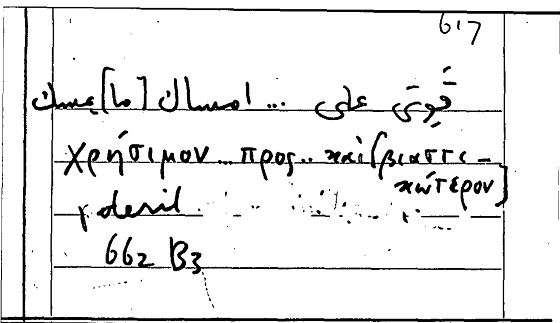 617
قوتى على ... امساك [ما] يمسك
χρήσιμον ... προς .. καὶ [βιαστι-
κώτερον]
662 B3